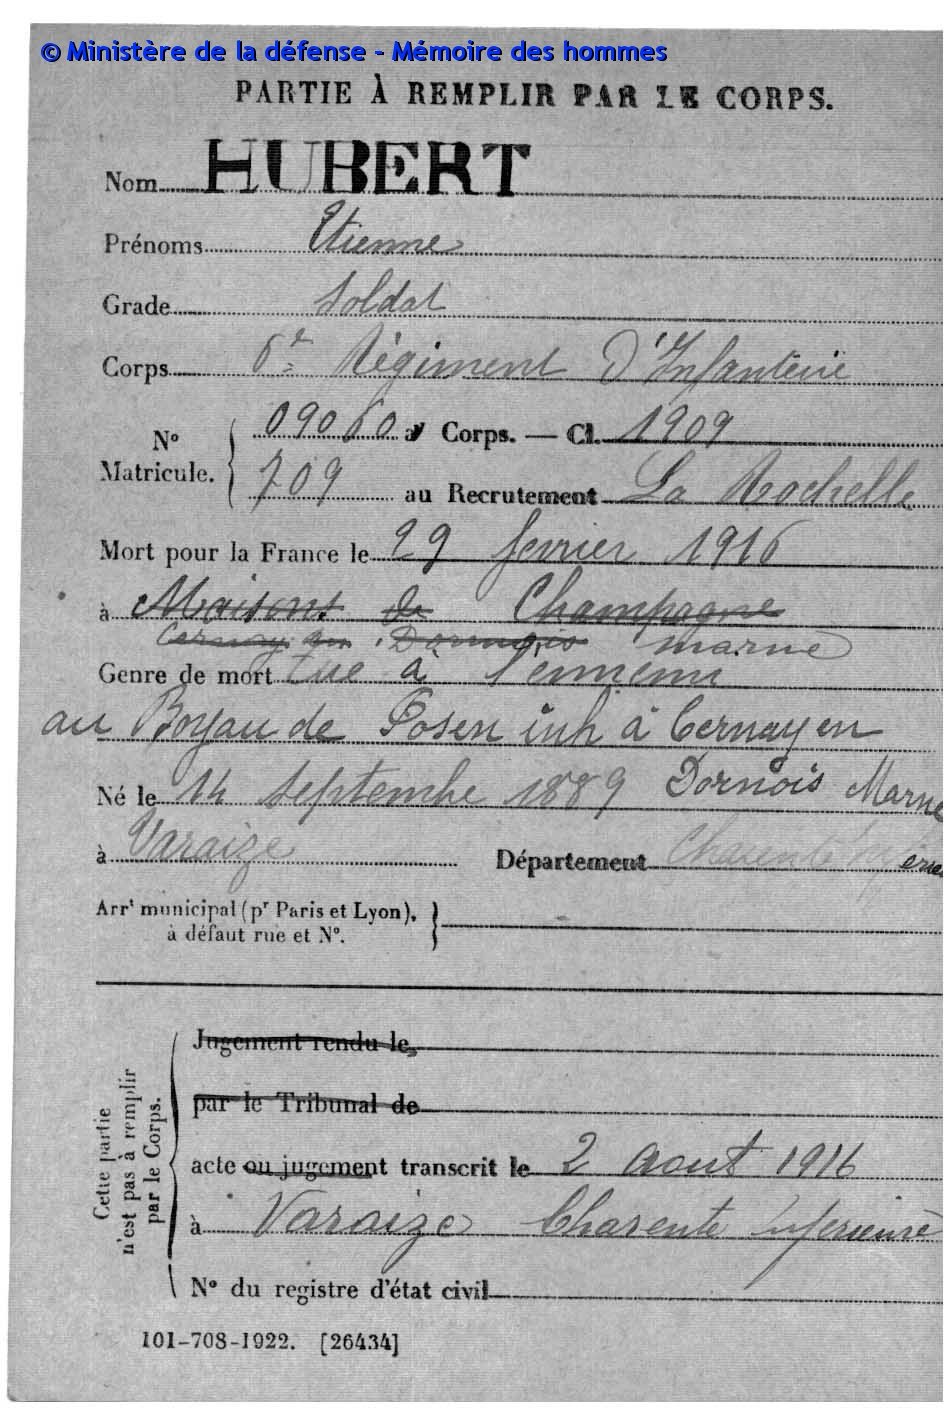 © Ministère de la défense - Mémoire des hommes
PARTIE À REMPLIR PAR LE CORPS.
Nom HUBERT
Prénoms Etienne
Grade Soldat
Corps 6e Régiment D'Infanterie
N° Matricule. 09060 au Corps. — Cl. 1909
709 au Recrutement La Rochelle
Mort pour la France le 29 fevrier 1916
à Maisons de Champagne
Cernay en Dormois marne
Genre de mort tué à l'ennemi
au Boyau de Posen à Cernay en
Dornois Marne
Né le 14 Septembre 1889
à Varaize Département Charente Inférieure
Arrt municipal (pr Paris et Lyon),
à défaut rue et N°.
Cette partie
n'est pas à remplir
par le Corps.
Jugement rendu le,
par le Tribunal de
acte ou jugement transcrit le 2 aout 1916
à Varaize Charente inferieure
N° du registre d'état civil
101-708-1922. [26434]